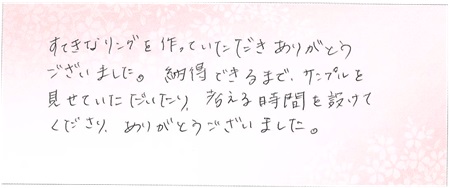 すてきなリングを作っていただきありがとう
ございました。納得できるまで、サンプルを
見せていただいたり、考える時間を設けて
くださり、ありがとうございました。